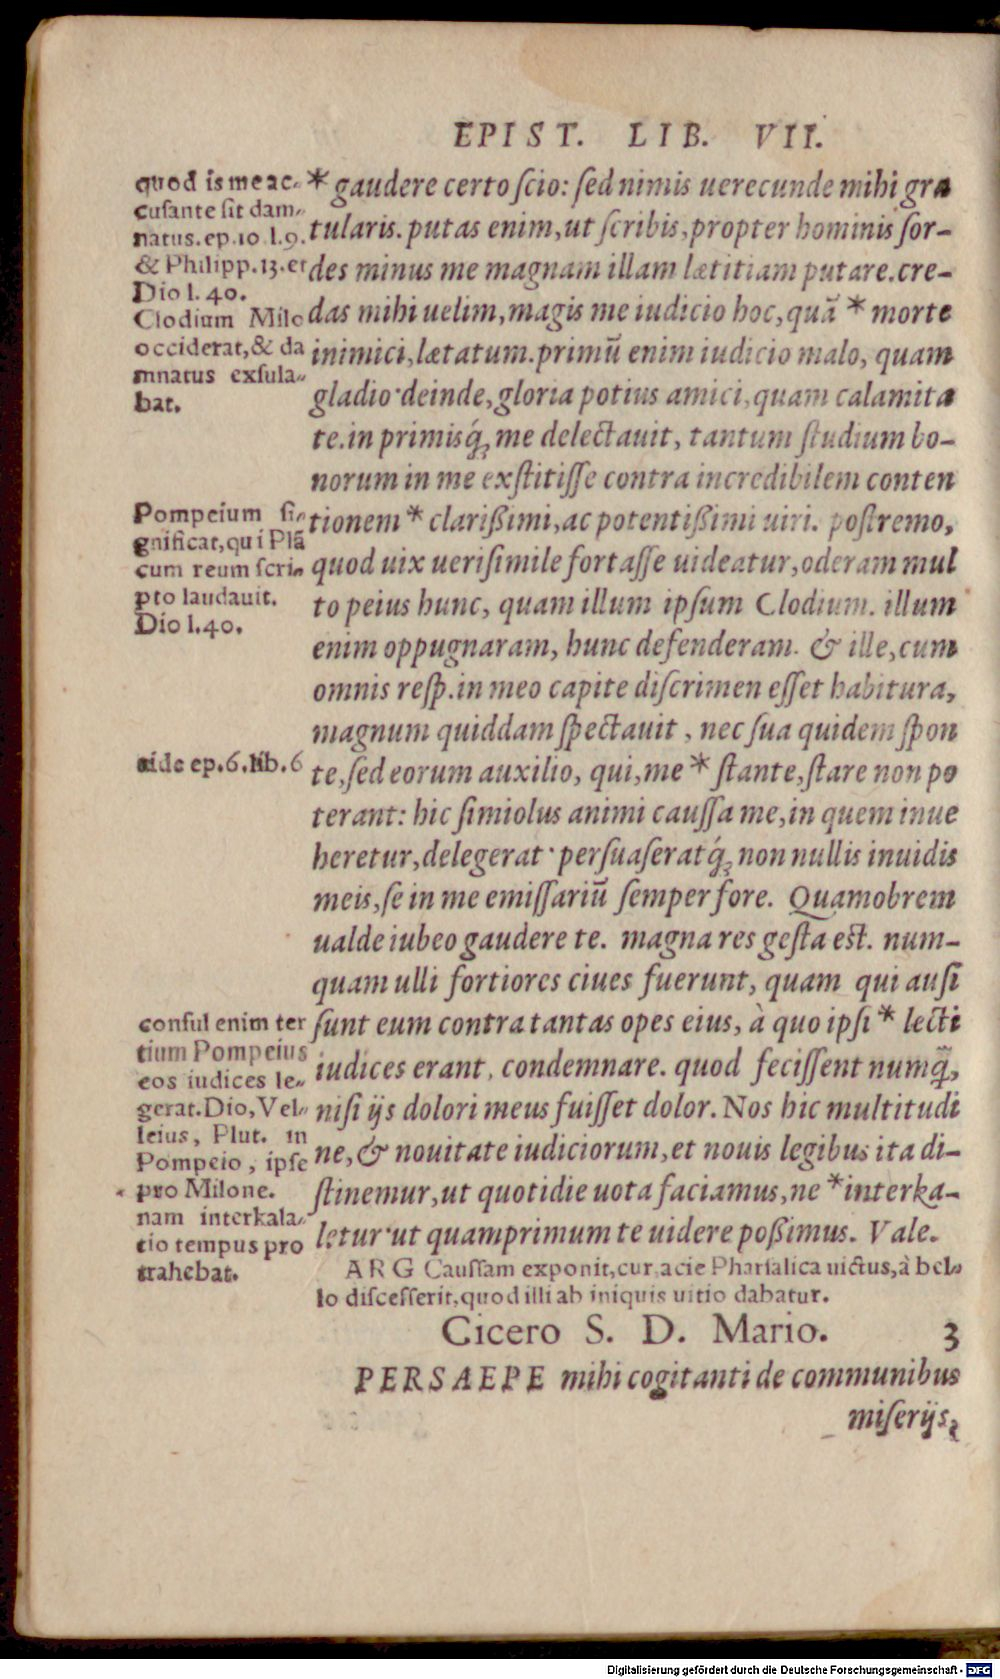 EPIST. LIB. VII.
quod is me ac-
cusante sit dam-
natus. ep. 10. l. 9.
& Philipp. 13. et
Dio l. 40.
Clodium Milo
occiderat, & da
mnatus exsula-
bat.
Pompeium si-
gnificat, qui Plã
cum reum scri-
pto laudauit.
Dio l. 40.
uide ep. 6. lib. 6
consul enim ter
tium Pompeius
eos iudices le-
gerat. Dio, Vel-
leius, Plut. in
Pompeio, ipse
pro Milone.
nam interkala-
tio tempus pro
trahebat.
* gaudere certo scio: sed nimis uerecunde mihi gra
tularis. putas enim, ut scribis, propter hominis sor-
des minus me magnam illam lætitiam putare. cre-
das mihi uelim, magis me iudicio hoc, quã * morte
inimici, lætatum. primũ enim iudicio malo, quam
gladio· deinde, gloria potius amici, quam calamita
te. in primisq́ꝫ me delectauit, tantum studium bo-
norum in me exstitisse contra incredibilem conten
tionem * clarißimi, ac potentißimi uiri. postremo,
quod uix uerisimile fortasse uideatur, oderam mul
to peius hunc, quam illum ipsum Clodium. illum
enim oppugnaram, hunc defenderam. & ille, cum
omnis resp. in meo capite discrimen esset habitura,
magnum quiddam spectauit, nec sua quidem spon
te, sed eorum auxilio, qui, me * stante, stare non po
terant: hic simiolus animi caussa me, in quem inue
heretur, delegerat· persuaseratq́ꝫ non nullis inuidis
meis, se in me emissariũ semper fore. Quamobrem
ualde iubeo gaudere te. magna res gesta est. num-
quam ulli fortiores ciues fuerunt, quam qui ausi
sunt eum contra tantas opes eius, à quo ipsi * lecti
iudices erant, condemnare. quod fecissent numq̃,
nisi ijs dolori meus fuisset dolor. Nos hic multitudi
ne, & nouitate iudiciorum, et nouis legibus ita di-
stinemur, ut quotidie uota faciamus, ne * interka-
letur· ut quamprimum te uidere poßimus. Vale.
ARG Caussam exponit, cur, acie Pharsalica uictus, à bel-
lo discesserit, quod illi ab iniquis uitio dabatur.
Cicero S. D. Mario. 3
PERSAEPE mihi cogitanti de communibus
miserijs,
Digitalisierung gefördert durch die Deutsche Forschungsgemeinschaft - DFG